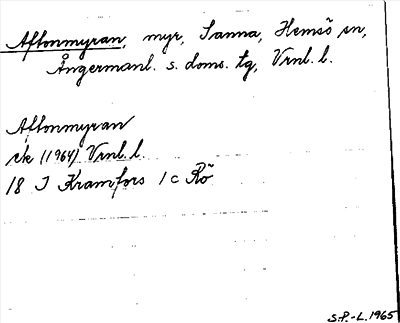 Aftonmyran, myr, Sanna, Hemsö sn,
Ångermanl. s. doms. tg, Vrnl. l.
Aftonmyran
ek (1964) Vrnl. l.
18 I Kramfors 1 c Rö
S.P.-L. 1965